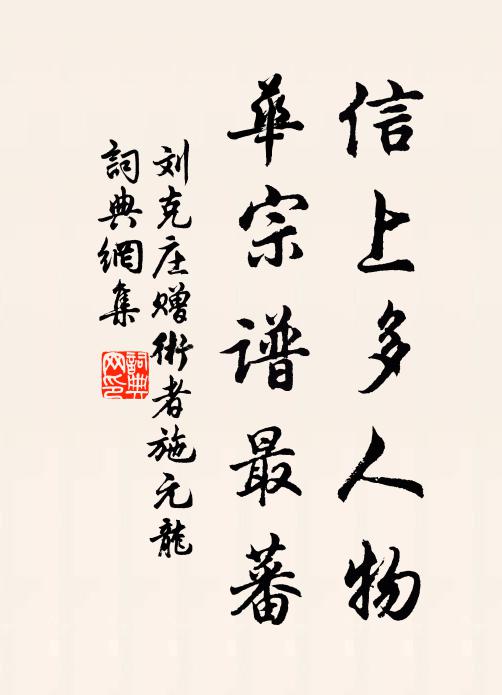 信上多人物
華宗譜最蕃
刘克庄赠術者施元龍
詞典網集
詞典網印